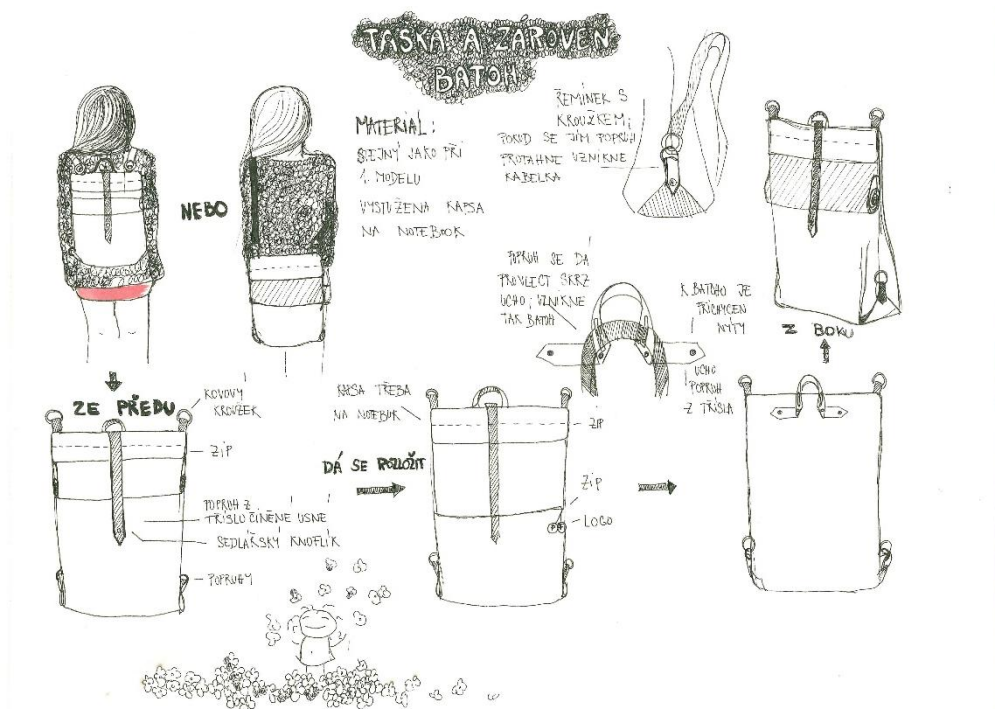 TAŠKA A ZÁROVEŇ
BATOH
MATERIÁL:
STEJNÝ JAKO PŘI
1. MODELU
VYSTUŽENÁ KAPSA
NA NOTEBOOK
NEBO
ŘEMÍNEK S
KROUŽKEM;
POKUD SE JÍM POPRUH
PROTÁHNE VZNIKNE
KABELKA
POPRUH SE DÁ
PROVLÉCT SKRZ
UCHO; VZNIKNE
TAK BATOH
K BATOHU JE
PŘICHYCEN
NÝTY
UCHO
POPRUH
Z TŘÍSLA
Z BOKU
ZE PŘEDU
KOVOVÝ
KROUŽEK
ZIP
POPRUH Z
TŘÍSLOČINĚNÉ USNE
SEDLÁŘSKÝ KNOFLÍK
POPRUHY
KAPSA TŘEBA
NA NOTEBUK
DÁ SE ROZLOŽIT
ZIP
ZIP
LOGO